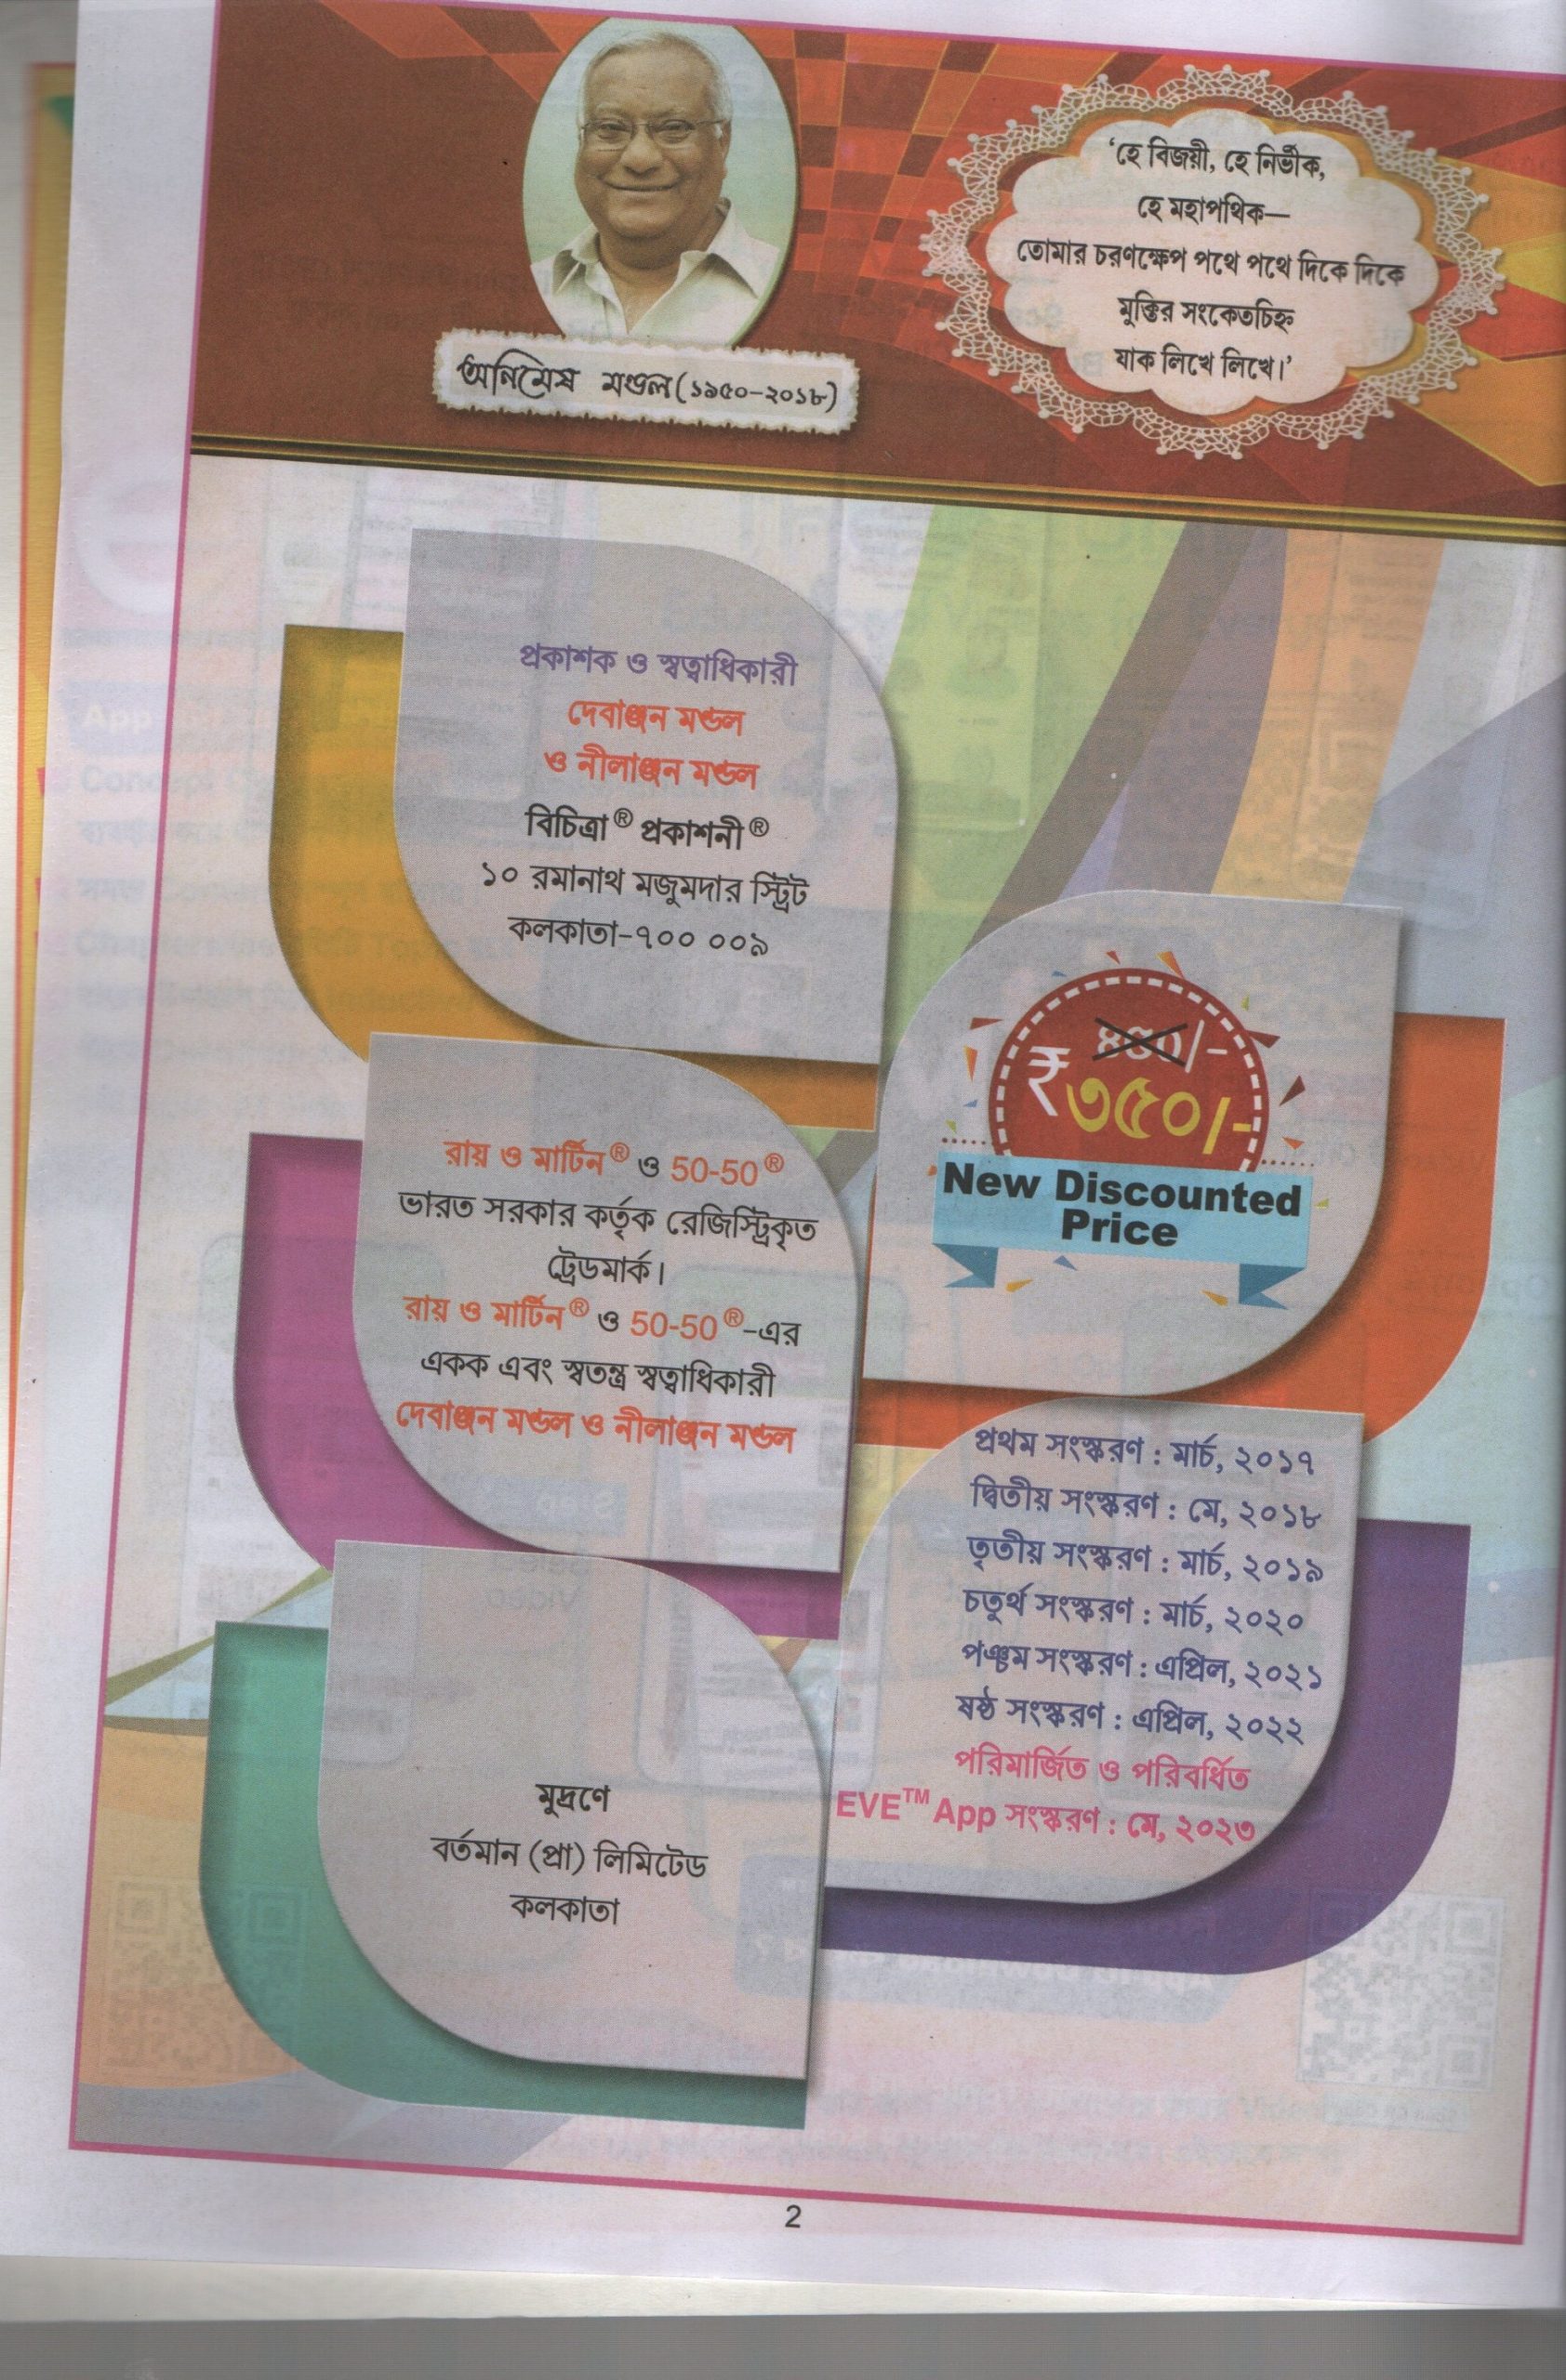 'হে বিজয়ী, হে নির্ভীক,
হে মহাপথিক—
তোমার চরণক্ষেপ পথে পথে দিকে দিকে
মুক্তির সংকেতচিহ্ন
যাক লিখে লিখে।'
অনিমেষ মণ্ডল (১৯৫০-২০১৮)
প্রকাশক ও স্বত্বাধিকারী
দেবাঞ্জন মণ্ডল
ও নীলাঞ্জন মণ্ডল
বিচিত্রা® প্রকাশনী®
১০ রমানাথ মজুমদার স্ট্রিট
কলকাতা-৭০০ ০০৯
/-
₹৩৫০/-
New Discounted
Price
রায় ও মার্টিন® ও 50-50®
ভারত সরকার কর্তৃক রেজিস্ট্রিকৃত
ট্রেডমার্ক।
রায় ও মার্টিন® ও 50-50®-এর
একক এবং স্বতন্ত্র স্বত্বাধিকারী
দেবাঞ্জন মণ্ডল ও নীলাঞ্জন মণ্ডল
প্রথম সংস্করণ : মার্চ, ২০১৭
দ্বিতীয় সংস্করণ : মে, ২০১৮
তৃতীয় সংস্করণ : মার্চ, ২০১৯
চতুর্থ সংস্করণ : মার্চ, ২০২০
পঞ্চম সংস্করণ : এপ্রিল, ২০২১
ষষ্ঠ সংস্করণ : এপ্রিল, ২০২২
পরিমার্জিত ও পরিবর্ধিত
EVE™ App সংস্করণ : মে, ২০২৩
মুদ্রণে
বর্তমান (প্রা) লিমিটেড
কলকাতা
2